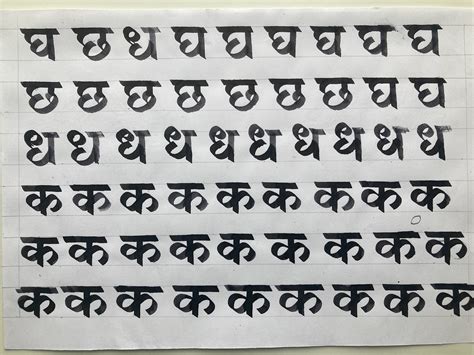 घ छ ध घ घ घ घ घ घ
छ छ छ छ छ छ छ घ घ
ध ध ध ध ध ध ध ध ध ध
क क क क क क क क क
क क क क क क क क क
क क क क क क क क क